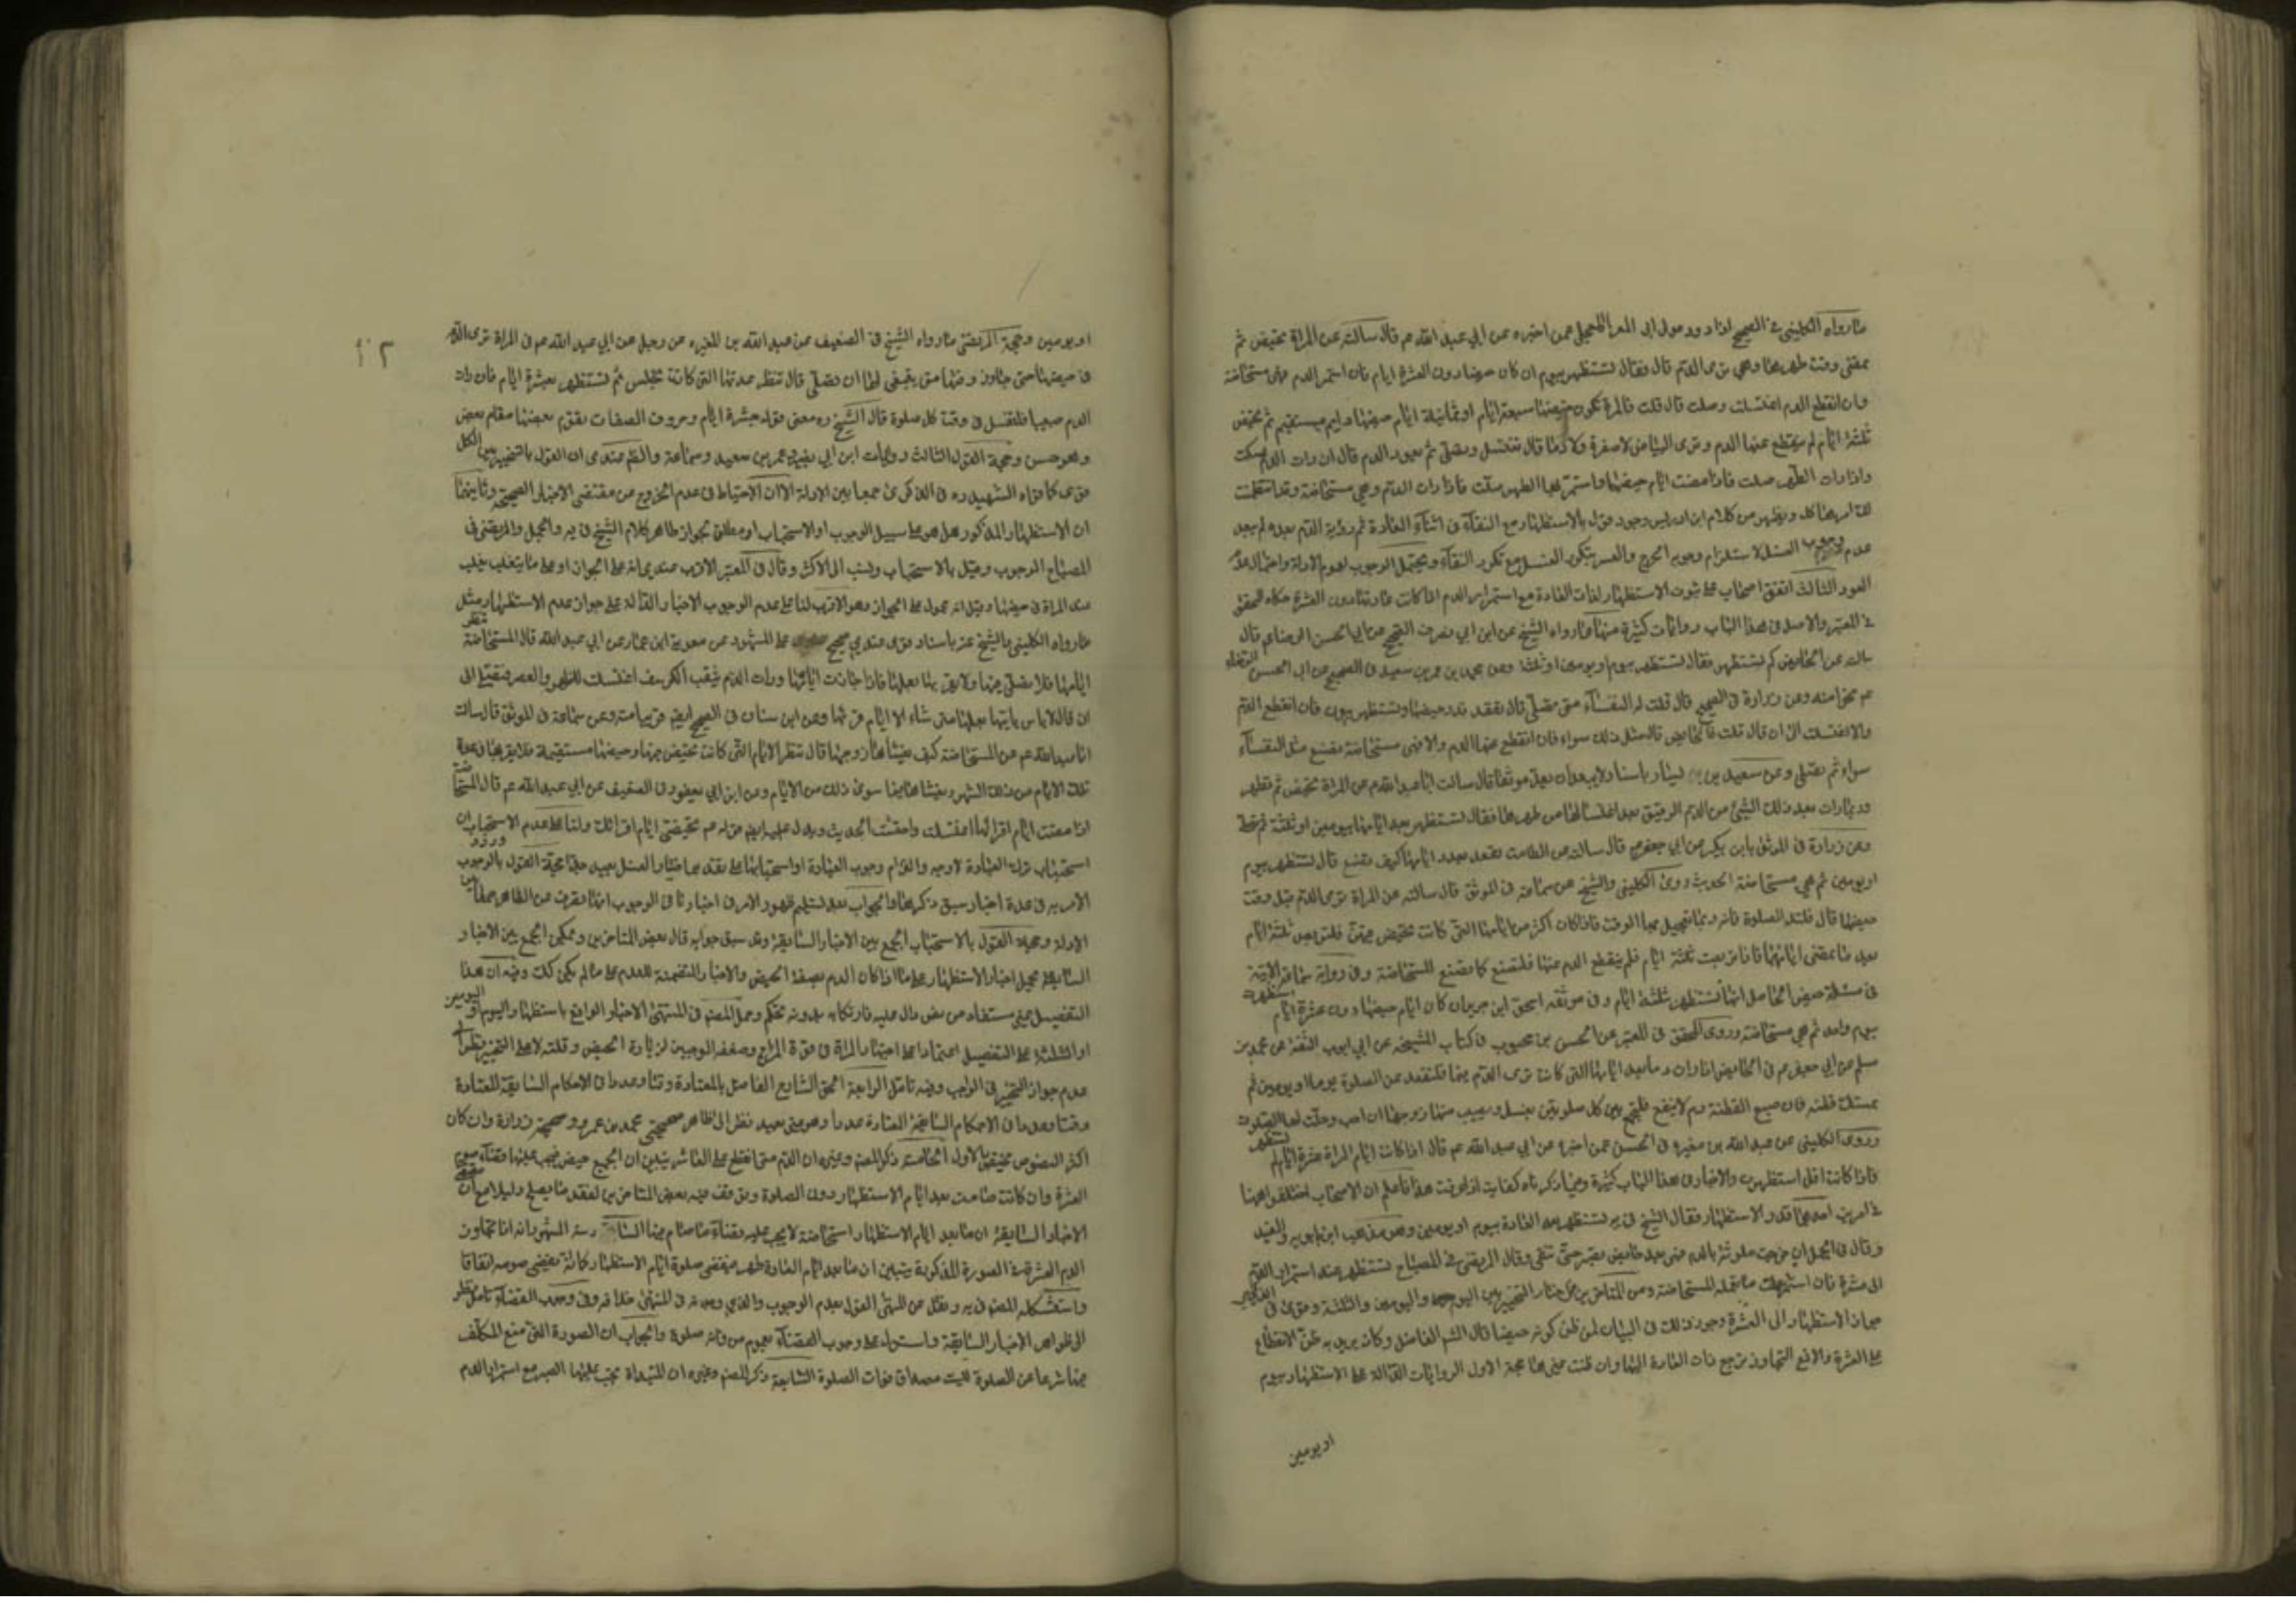 ما رواه الكليني في الصحيح الى داود مولى ابي المعزا العجلي عمن اخبره عن ابي عبد الله عم قال سالته عن المراة تحيض ثم
يمضي وقت طهرها وهي ترى الدم قال فقال تستظهر بيوم ان كان حيضها دون العشرة ايام فان استمر الدم فهي مستحاضة
وان انقطع الدم اغتسلت وصلت قال قلت فالمراة يكون حيضها سبعة ايام او ثمانية ايام حيضها دايم مستقيم ثم تحيض
ثلثة ايام ثم ينقطع عنها الدم وترى البياض لا صفرة ولا دما قال تغتسل وتصلي ثم يعود الدم قال ان رات الدم امسكت
واذا رات الطهر صلت فاذا مضت ايام حيضها واستمر بها الطهر صلت فاذا رات الدم فهي مستحاضة وقد انتظمت
لك امرها كله ويظهر من كلام ابن ادريس وجود قول بالاستظهار مع النقاء في اثناء العادة ثم رؤية الدم بعده لم يبعد
عدم وجوب الغسل لاستلزام وجوبه الحرج والعسر بتكرر الغسل مع تكرر النقاء ويحتمل الوجوب لعموم الادلة واحتمال عدم
العود الثالث اتفق اصحاب على ثبوت الاستظهار لذات العادة مع استمرار الدم اذا كانت عادتها دون العشرة حكاه المحقق
في المعتبر والاصل في هذا الباب روايات كثيرة منها ما رواه الشيخ عن ابن ابي نصر في الصحيح عن ابي الحسن الرضا ع قال
سالته عن الحايض كم تستظهر فقال تستظهر بيوم او يومين او ثلثة وعن محمد بن عمر بن سعيد في الصحيح عن ابي الحسن الرضا
عم نحوا منه وعن زرارة في الصحيح قال قلت له النفساء متى تصلي قال تقعد قدر حيضها وتستظهر بيومين فان انقطع الدم
والا اغتسلت الى ان قال قلت فالحايض قال مثل ذلك سواء فان انقطع عنها الدم والا فهي مستحاضة تصنع مثل النفساء
سواء ثم تصلي وعن سعيد بن يسار باسناد لا يبعد ان يعد موثقا قال سالت ابا عبد الله عم عن المراة تحيض ثم تطهر
وربما رات بعد ذلك الشيء من الدم الرقيق بعد اغتسالها من طهرها فقال تستظهر بعد ايامها بيومين او ثلثة ثم تصلي
وعن زرارة في الموثق بابن بكير عن ابي جعفر عم قال سالته عن الطامث تقعد بعدد ايامها كيف تصنع قال تستظهر بيوم
او يومين ثم هي مستحاضة الحديث وروى الكليني والشيخ عن سماعة في الموثق قال سالته عن المراة ترى الدم قبل وقت
حيضها قال فلتدع الصلوة فانه ربما تعجل بها الوقت فاذا كان اكثر من ايامها التي كانت تحيض فيهن فلتربص ثلثة ايام
بعد ما تمضي ايامها فاذا تربصت ثلثة ايام فلم ينقطع الدم عنها فلتصنع كما تصنع المستحاضة وفي رواية سماعة الاتية
في مسئلة حيض الحامل انها تستظهر بثلثة ايام وفي موثقة اسحق ابن جرير ان كان ايام حيضها دون عشرة ايام استظهرت
بيوم واحد ثم هي مستحاضة وروى المحقق في المعتبر عن الحسن بن محبوب في كتاب المشيخة عن ابي ايوب الثقة عن محمد بن
مسلم عن ابي جعفر عم في الحايض اذا رات دما بعد ايامها التي كانت ترى الدم فيها فلتقعد عن الصلوة يوما او يومين ثم
تمسك قطنة فان صبغ القطنة دم لا ينقطع فلتجمع بين كل صلوتين بغسل ويصيب منها زوجها ان احب وحلت لها الصلوة
وروى الكليني عن عبد الله بن مغيرة في الحسن عمن اخبره عن ابي عبد الله عم قال اذا كانت ايام المراة عشرة ايام لم تستظهر
فاذا كانت اقل استظهرت والاخبار في هذا الباب كثيرة وفيما ذكرناه كفاية اذا عرفت هذا فاعلم ان الاصحاب اختلفوا هنا
في امرين احدهما قدر الاستظهار فقال الشيخ في يه تستظهر بعد العادة بيوم او يومين وهو مذهب ابن بابويه والمفيد
وقال في الجمل ان خرجت ملوثة بالدم فهي بعد حايض تصبر حتى تنقى وقال المرتضى في المصباح تستظهر عند استمرار الدم
الى عشرة فان استمر عملت ما تعمله المستحاضة ومن المتاخرين من اختار التخيير بين اليوم واليومين والثلثة وقوى في الذكرى
جواز الاستظهار الى العشرة وجوز ذلك في البيان لمن ظن كونه حيضا قال الشم الفاضل وكان يريد به ظن الانقطاع
على العشرة والا فمع التجاوز ترجع ذات العادة اليها وان ظنت غيرها حجة الاول الروايات الدالة على الاستظهار بيوم
او يومين
او يومين وحجة المرتضى ما رواه الشيخ في الضعيف عن عبد الله بن المغيره عن رجل عن ابي عبد الله عم في المراة ترى الدم
في حيضها حتى جاوز وقتها متى ينبغي لها ان تصلي قال تنظر عدتها التي كانت تجلس ثم تستظهر بعشرة ايام فان رات
الدم صبيبا فلتغتسل في وقت كل صلوة قال الشيخ ره معنى قوله بعشرة ايام وحروف الصفات يقوم بعضها مقام بعض
وهو حسن وحجة القول الثالث روايات ابن ابي نصر ومحمد بن عمر بن سعيد وسماعة والظم عندي ان القول بالتخيير بين الكل
قوى كما قواه الشهيد ره في الذكرى جمعا بين الادلة الا ان الاحتياط في عدم الخروج من مقتضى الاخبار الصحيحة وثانيهما
ان الاستظهار المذكور هل هو على سبيل الوجوب او الاستحباب او مطلق الجواز ظاهر كلام الشيخ في يه والجمل والمرتضى في
المصباح الوجوب وقيل بالاستحباب ونسب الى الاكثر وقال في المعتبر الاقرب عندي انه على الجواز او على ما يغلب على
ظن المراة في حيضها وقيل انه محمول على الجواز وهو الاقرب لنا على عدم الوجوب الاخبار الدالة على جواز عدم الاستظهار مثل
ما رواه الكليني والشيخ عنه باسناد قوى عندي صحيح على المشهور عن معوية ابن عمار عن ابي عبد الله قال المستحاضة تنظر
ايامها فلا تصلي فيها ولا يقربها بعلها فاذا جازت ايامها ورات الدم يثقب الكرسف اغتسلت للظهر والعصر
ان قال لا باس ان ياتيها بعلها متى شاء الا ايام قرئها وعن ابن سنان في الصحيح ايضا قريبا منه وعن سماعة في الموثق قال سالت
ابا عبد الله عم عن المستحاضة كيف يغشاها زوجها قال تنظر الايام التي كانت تحيض فيها وحيضها مستقيمة فلا يقربها في عدة
تلك الايام من ذلك الشهر ويغشاها فيما سوى ذلك من الايام وعن ابن ابي يعفور في الضعيف عن ابي عبد الله عم قال المستحاضة
اذا مضت ايام اقرائها اغتسلت واحتشت الحديث ويدل عليه ايض قوله عم تحيضي ايام اقرائك ولنا على عدم الاستحباب ان
استحباب ترك العبادة لا وجه والتزام وجوب العبادة او استحبابها على تقدير اختيار الغسل بعيد جدا حجة القول بالوجوب ورود
الامر به في عدة اخبار سبق ذكرها والجواب بعد تسليم ظهور الامر في اخبارنا في الوجوب انها تصرف عن الظاهر جمعا بين
الادلة وحجة القول بالاستحباب الجمع بين الاخبار السابقة وقد سبق جوابه قال بعض المتاخرين ويمكن الجمع بين الاخبار
السابقة بحمل اخبار الاستظهار على ما اذا كان الدم بصفة الحيض والاخبار المتضمنة للعدم على ما لم يكن كك وفيه ان هذا
التفصيل غير مستفاد من نص دال عليه فارتكابه بدونه تحكم وحمل المصم في المنتهى الاخبار الواقع باستظهار اليوم او اليومين
او الثلثة على التفصيل اعتمادا على اجتهاد المراة في قوة المزاج وضعفه الموجبين لزيادة الحيض وقلته لا على التخيير نظرا الى
عدم جواز التخيير في الواجب وفيه تامل الرابعة الحق الشارح الفاضل بالمعتادة وقتا وعددا في الاحكام السابقة المعتادة
وقتا وعددا في الاحكام السابقة المعتادة عددا وهو غير بعيد نظر الى ظاهر صحيحتي محمد بن عمر وصحيحة زرارة وان كان
اكثر النصوص يختص بالاول الخامسة ذكر المصم وغيره ان الدم متى انقطع على العاشر تبين ان الجميع حيض فيجب عليها قضاء صوم
العشرة وان كانت صامت بعد ايام الاستظهار دون الصلوة وتوقف فيه بعض المتاخرين لفقد ما يصلح دليلا مع ان مقتضى
الاخبار السابقة ان ما بعد ايام الاستظهار استحاضة لا يجب عليه قضاء ما صام فيها السادسة المشهور انه اذا تجاوز
الدم العشرة في الصورة المذكورة يتبين ان ما بعد ايام العادة طهر فيقضي صلوة ايام الاستظهار كما انه يقضي صومه اتفاقا
واستشكله المصم في يه ونقل عن المنتهى القول بعدم الوجوب والذي وجدته في المنتهى خلافه وفي وجوب القضاء تامل نظر
الى ظواهر الاخبار السابقة واستدل على وجوب القضاء بعموم من فاته صلوة والجواب ان الصورة التي منع المكلف
فيها شرعا عن الصلوة ليست مصداق فوات الصلوة السابعة ذكر المصم وغيره ان المبتداة يجب عليها الصبر مع استمرار الدم